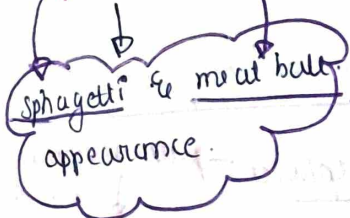 sphagetti & meat ball
appearance.